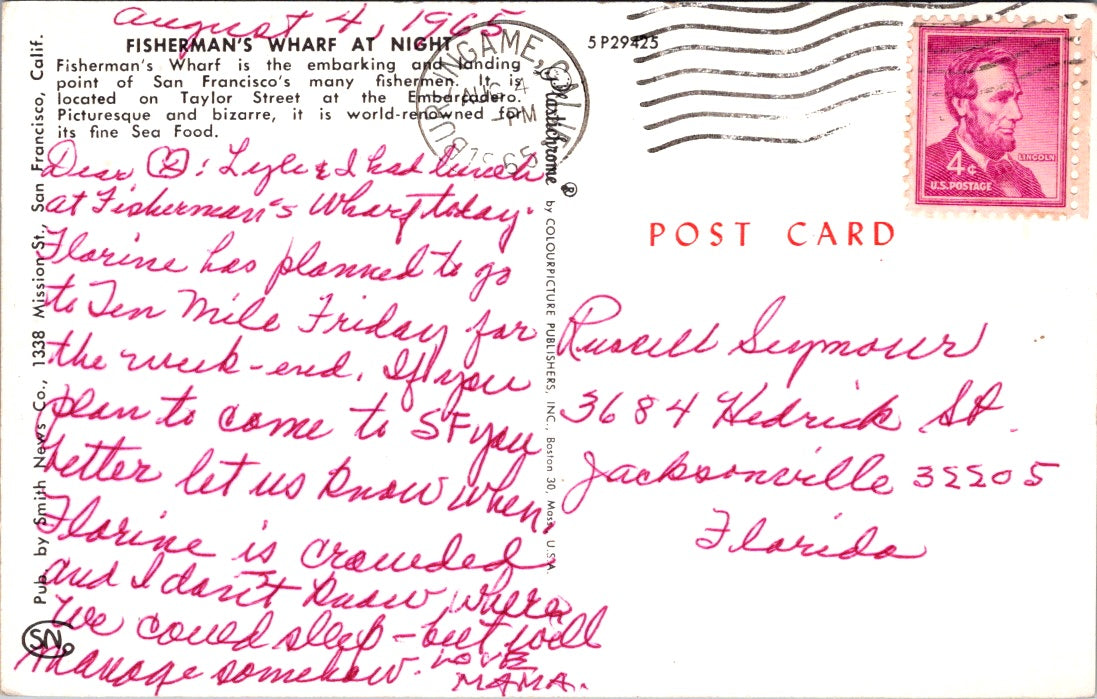 august 4, 1965
FISHERMAN'S WHARF AT NIGHT
Fisherman's Wharf is the embarking and landing
point of San Francisco's many fishermen. It is
located on Taylor Street at the Embarcadero.
Picturesque and bizarre, it is world-renowned for
its fine Sea Food.
Dear : Lyle & I had lunch
at Fisherman's Wharf today.
Florine has planned to go
to Ten Mile Friday for
the week-end. If you
plan to come to SF you
better let us know when.
Florine is crowded
and I don't know where
we could sleep - but will
manage somehow. LOVE
MAMA.
Pub. by Smith News Co., 1338 Mission St., San Francisco, Calif.
SN
BURLINGAME, CALIF.
AUG 4
PM
1965
5P29425
Plastichrome ®
by COLOURPICTURE PUBLISHERS, INC., Boston 30, Mass., U.S.A.
4¢
LINCOLN
U.S. POSTAGE
POST CARD
Russell Seymour
3684 Hedrick St.
Jacksonville 32205
Florida